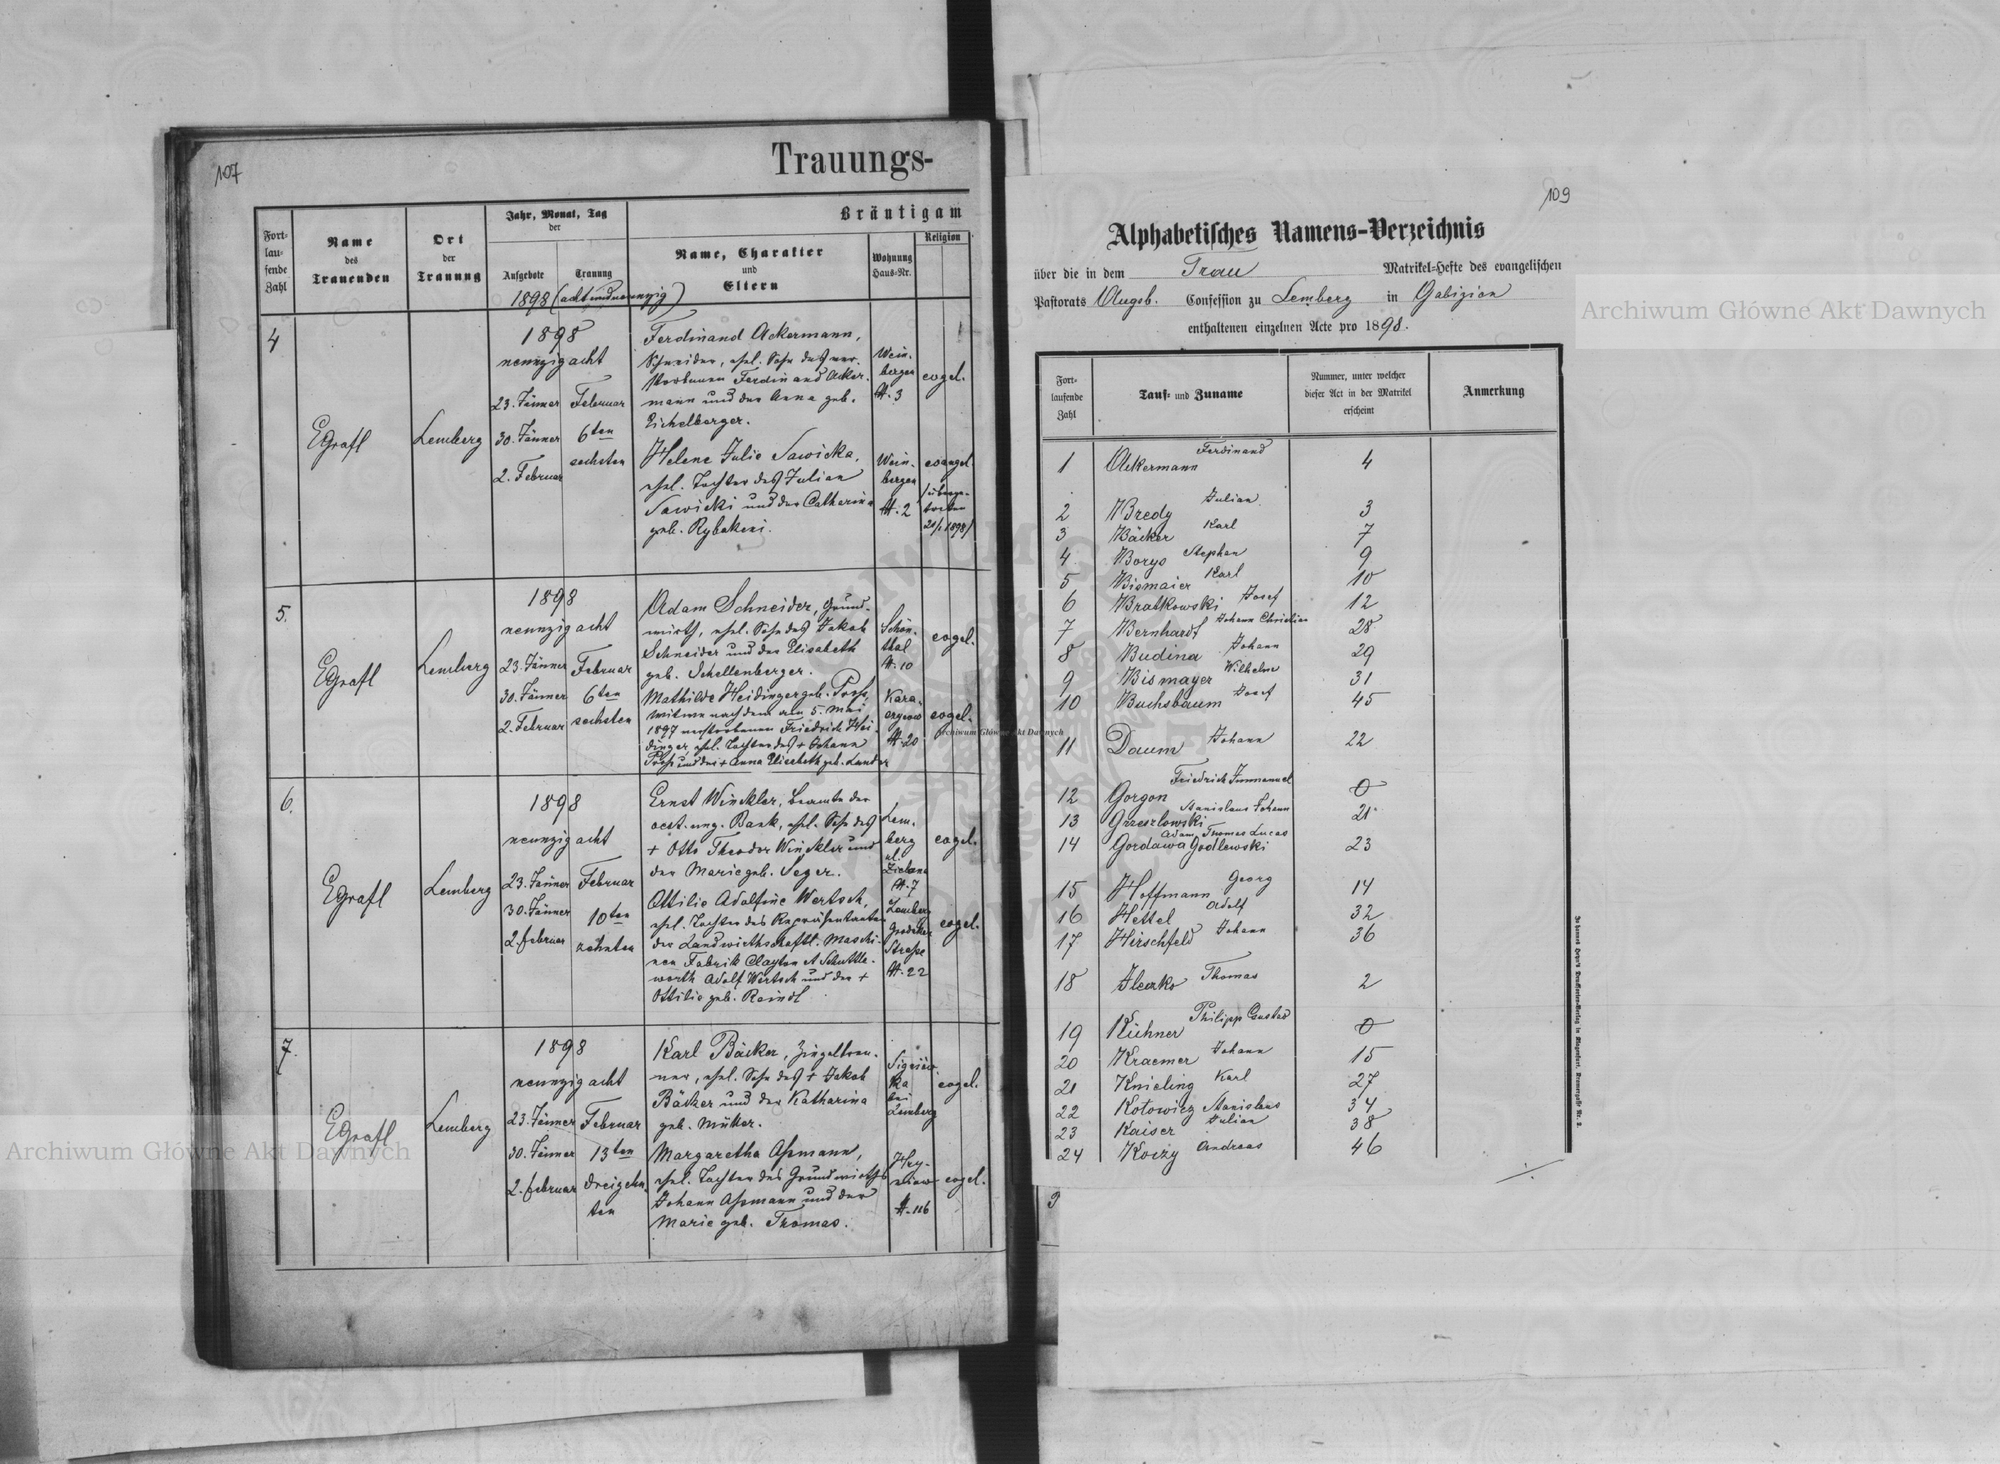 107
Trauungs-
Fort-
lau-
fende
Zahl
Name
des
Trauenden
Ort
der
Trauung
Jahr, Monat, Tag
der
Aufgebote
Trauung
1898 (achtundneunzig)
Bräutigam
Name, Charakter
und
Eltern
Wohnung
Haus-Nr.
Religion
4
EGrafl
Lemberg
1898
neunzig acht
23. Jänner
30. Jänner
2. Februar
Februar
6ten
sechsten
Ferdinand Ackermann,
Schneider, ehel. Sohn des ver-
storbenen Ferdinand Acker-
mann und der Anna geb.
Eichelberger.
Wein-
bergen
N. 3
evgel.
Helene Julie Sawicka,
ehel. Tochter des Julian
Sawicki und der Catharina
geb. Rybakeni.
Wein-
bergen
N. 2
evangel.
/überge-
treten
20/1 1898/
5.
EGrafl
Lemberg
1898
neunzig acht
23. Jänner
30. Jänner
2. Februar
Februar
6ten
sechsten
Adam Schneider, Grund-
wirth, ehel. Sohn des Jakob
Schneider und der Elisabeth
geb. Schellenberger.
Schön-
thal
N. 10
evgel.
Mathilde Heidinger geb.
Witwe nach dem am 5. Mai
1897 verstorbenen Friedrich Hei-
dinger, ehel. Tochter des + Johann
und der + Anna Elisabeth geb. Lander
N. 20
evgel.
6.
EGrafl
Lemberg
1898
neunzig acht
23. Jänner
30. Jänner
2. Februar
Februar
10ten
zehnten
Ernst Winckler, Beamte der
oest. ung. Bank, ehel. Sohn des
+ Otto Theodor Winckler und
der Marie geb. Seger.
Lem-
berg
ul.
Zielona
N. 7
evgel.
Ottilie Adolfine Wertsch,
ehel. Tochter des Repräsentanten
der Landwirthschaftl. Maschi-
nen Fabrik Clayton et Schuttle-
worth Adolf Wertsch und der +
Ottilie geb. Reindl
Lemberg
Grodeker
Strasse
N. 22
evgel.
7.
EGrafl
Lemberg
1898
neunzig acht
23. Jänner
30. Jänner
2. Februar
Februar
13ten
dreizehn-
ten
Karl Bäcker, Ziegelbren-
ner, ehel. Sohn des + Jakob
Bäcker und der Katharina
geb. Müller.
Signiów-
ka
bei
Lemberg
evgel.
Margaretha Assmann,
ehel. Tochter des Grundwirthes
Johann Assmann und der
Marie geb. Thomas.
Hry-
niów
N. 116
evgel.
109
Alphabetisches Namens-Verzeichnis
über die in dem Trau Matrikel-Hefte des evangelischen
Pastorats Augsb. Confession zu Lemberg in Galizien
enthaltenen einzelnen Acte pro 1898.
Fort-
laufende
Zahl
Tauf- und Zuname
Nummer, unter welcher
dieser Act in der Matrikel
erscheint
Anmerkung
1 Ackermann Ferdinand 4
2 Bredy Julian 3
3 Bäcker Karl 7
4 Borys Stephan 9
5 Bismaier Karl 10
6 Bratkowski Josef 12
7 Bernhardt Johann Christian 28
8 Budina Johann 29
9 Bismayer Wilhelm 31
10 Buchsbaum Josef 45
11 Daum Johann 22
12 Gorgon Friedrich Immanuel 0
13 Grzeszlowski Stanislaus Johann 21
14 Gordawa Godlewski Adam Thomas Lucas 23
15 Hoffmann Georg 14
16 Hettel Adolf 32
17 Hirschfeld Johann 36
18 Ilczko Thomas 2
19 Kühner Philipp Gustav 0
20 Kraemer Johann 15
21 Knieling Karl 27
22 Kotowicz Stanislaus 34
23 Kaiser Julian 38
24 Koczy Andreas 46
Archiwum Główne Akt Dawnych
Archiwum Główne Akt Dawnych
Archiwum Główne Akt Dawnych